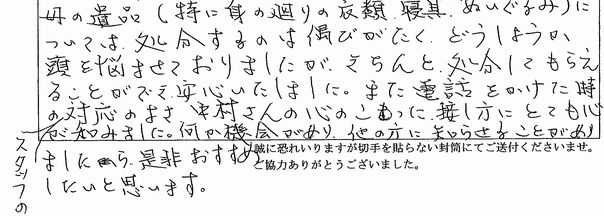 母の遺品（特に身の廻りの衣類、寝具、ぬいぐるみ）に
ついては、処分するのは偲びがたく、どうしようか
頭を悩ませておりましたが、きちんと処分してもらえ
ることができて安心いたしました。また電話をかけた時
スタッフの
の対応のよさ、中村さんの心のこもった接し方にとても心
が和みました。何か機会があり、他の方に知らせることがあり
ましたら、是非おすすめ
したいと思います。
誠に恐れいりますが切手を貼らない封筒にてご送付くださいませ。
ご協力ありがとうございました。